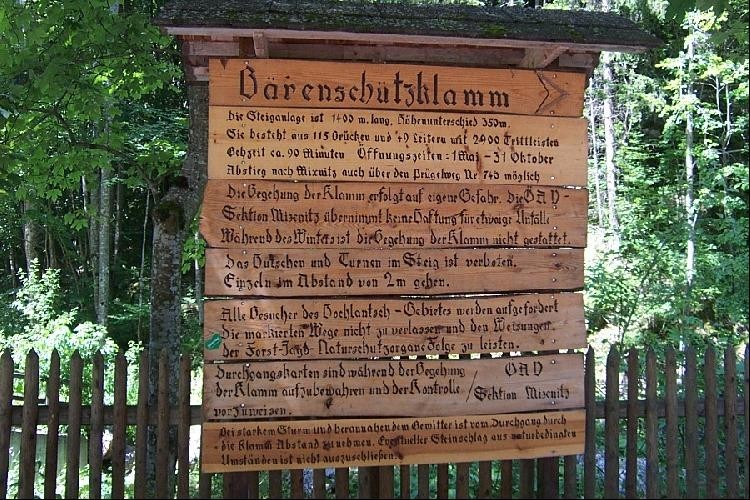 Bärenschützklamm
Die Steiganlage ist 1400 m. lang, Höhenunterschied 350m.
Sie besteht aus 115 Brücken und 49 Leitern mit 2900 Trittleisten
Gehzeit ca. 90 Minuten Öffnungszeiten: 1 Mai – 31 Oktober
Abstieg nach Mixnitz auch über den Prügelweg Nr. 745 möglich
Die Begehung der Klamm erfolgt auf eigene Gefahr. Die ÖAV –
Sektion Mixnitz übernimmt keine Haftung für etwaige Unfälle
Während des Winters ist die Begehung der Klamm nicht gestattet.
Das Hutschen und Turnen im Steig ist verboten.
Einzeln im Abstand von 2m gehen.
Alle Besucher des Hochlantsch – Gebietes werden aufgefordert
die markierten Wege nicht zu verlassen und den Weisungen
der Forst-Jagd Naturschutzorgane Folge zu leisten.
Durchgangskarten sind während der Begehung
der Klamm aufzubewahren und der Kontrolle
vorzuweisen.
ÖAV
Sektion Mixnitz
Bei starkem Sturm und herannahendem Gewitter ist vom Durchgang durch
die Klamm Abstand zu nehmen. Eventueller Steinschlag aus naturbedingten
Umständen ist nicht auszuschließen.